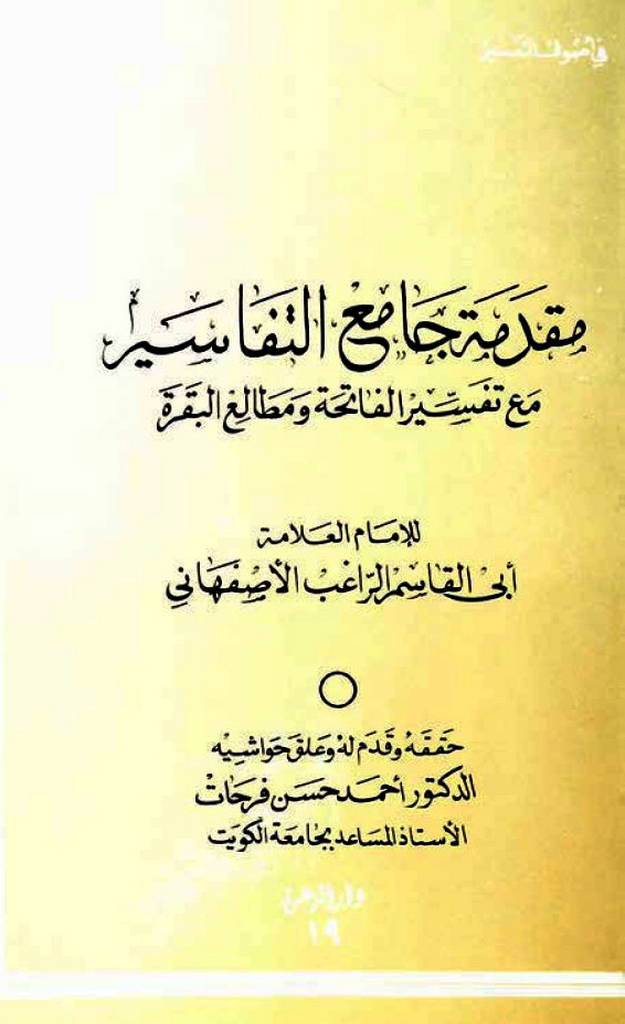 في أصول التفسير
مقدمة جامع التفاسير
مع تفسير الفاتحة ومطالع البقرة
للإمام العلامة
أبي القاسم الراغب الأصفهاني
حققه وقدم له وعلق حواشيه
الدكتور أحمد حسن فرحات
الأستاذ المساعد بجامعة الكويت
دار الدعوة
١٩